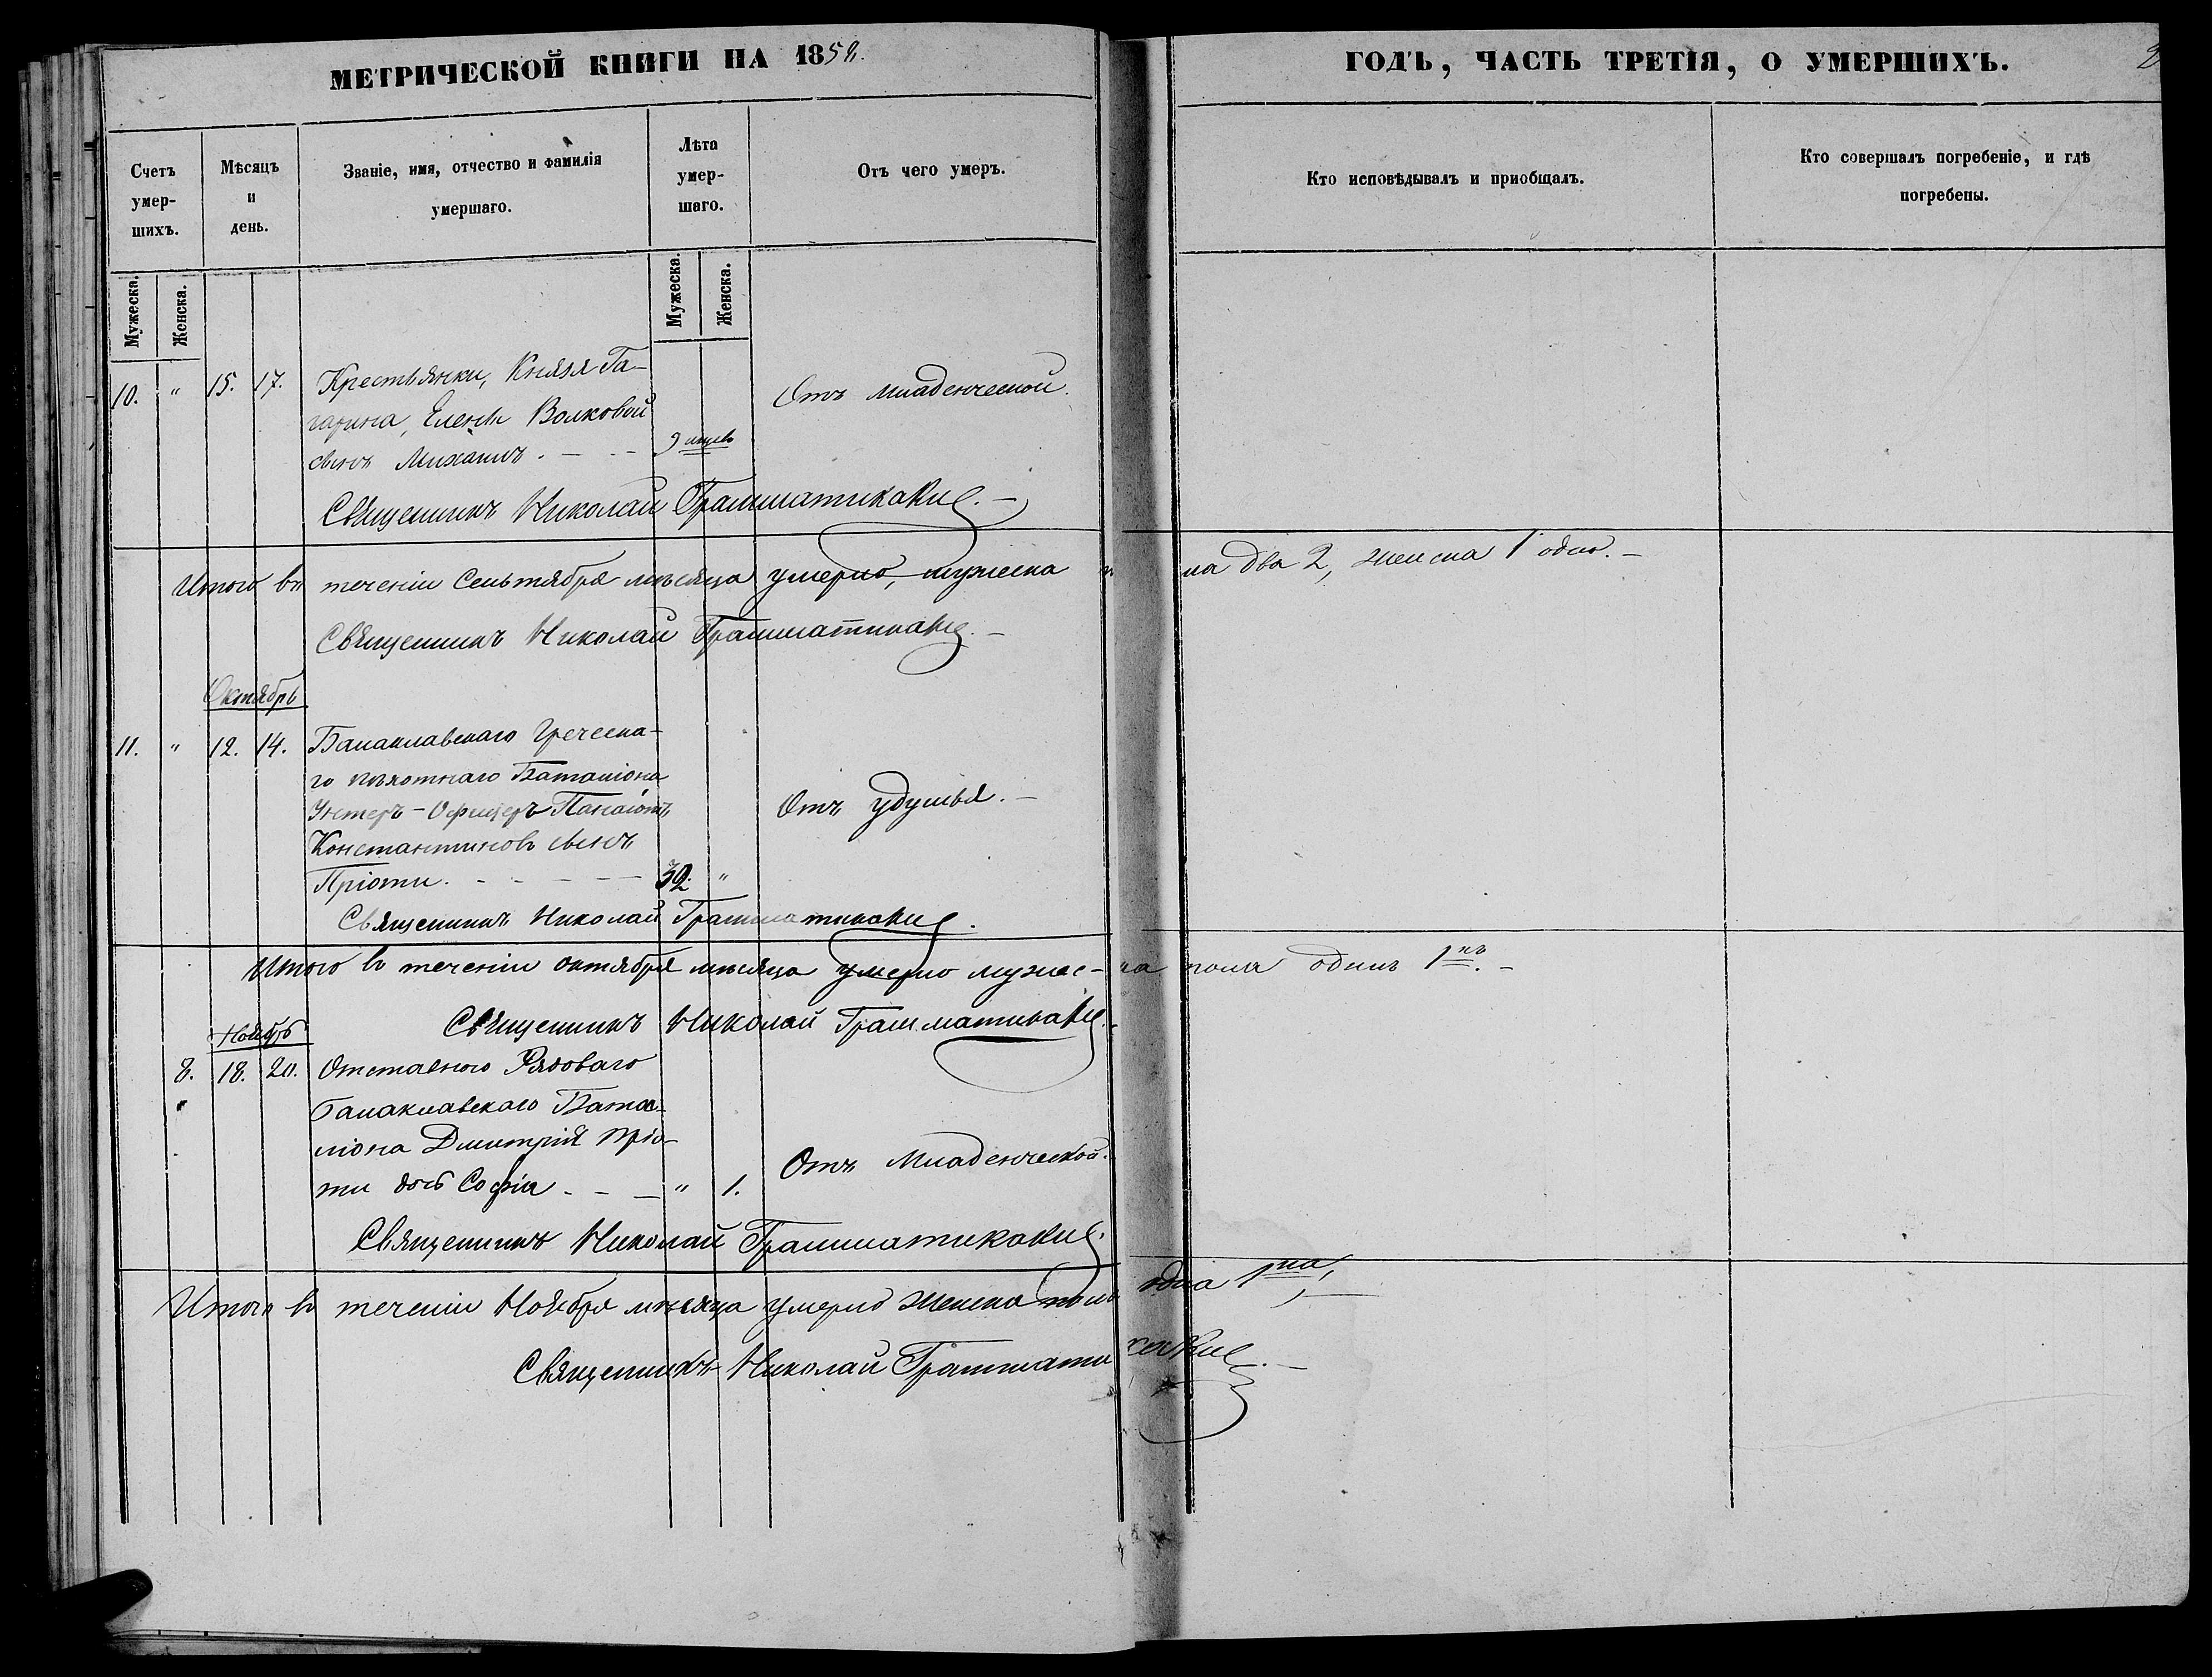 МЕТРИЧЕСКОЙ КНИГИ НА 1852. ГОДЪ, ЧАСТЬ ТРЕТІЯ, О УМЕРШИХЪ.
Счетъ умер-шихъ.
Мѣсяцъ и день.
Званіе, имя, отчество и фамилія умершаго.
Лѣта умер-шаго.
Отъ чего умеръ.
Кто исповѣдывалъ и приобщалъ.
Кто совершалъ погребеніе, и гдѣ погребены.
Мужеска. Женска. Мужеска. Женска.
10. " 15. 17. Крестьянки, Князя Га-
гарина, Елены Волковой
сынъ Михаилъ. - - - 9 мцевъ Отъ младенческой.
Священникъ Николай Грамматикаки. -
Итого въ теченіи Сентября мѣсяца умерло, мужеска пола два 2, женска 1 одно. -
Священникъ Николай Грамматикаки. -
Октябрь
11. " 12. 14. Балаклавскаго Греческа-
го пѣхотнаго Баталіона
Унтеръ-Офицеръ Панаіотъ Отъ удушья. -
Константиновъ сынъ
Пріоти. - - - - - 32. "
Священникъ Николай Грамматикаки.
Итого въ теченіи октября мѣсяца умерло мужес-ка пола одинъ 1нъ. -
Священникъ Николай Грамматикаки. -
Ноябрь
8. 18. 20. Отставного Рядоваго
Балаклавскаго Бата-
ліона Дмитрія Пріо-
ти дочь Софія - - - " 1. Отъ Младенческой.
Священникъ Николай Грамматикаки.
Итого въ теченіи Ноября мѣсяца умерло женска пола одна 1на,
Священникъ Николай Грамматикаки. -